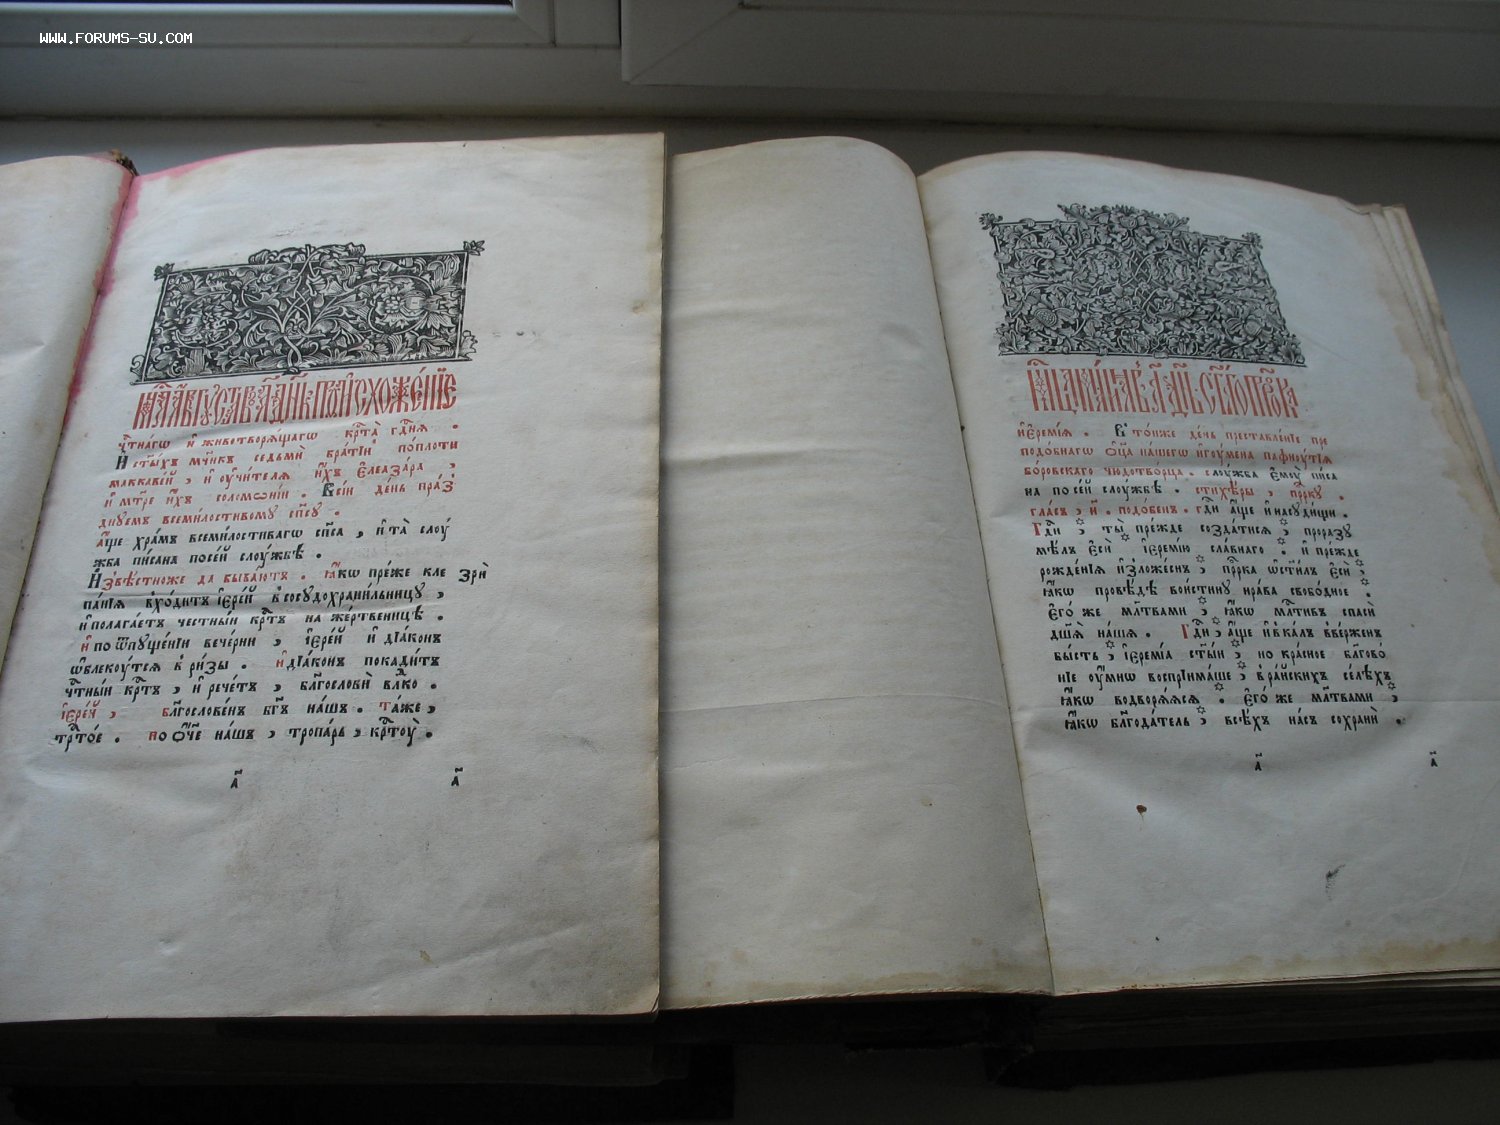 WWW.FORUMS-SU.COM
чⷭ҇тна́гѡ и҆ животворѧ́щагѡ крⷭ҇та̀ гдⷭ҇нѧ .
И҆ ст҃ы́хъ мч҃нкъ седьмѝ бра́тїи по́плоти
маккаве́й , и҆ оу҆чи́телѧ и҆́хъ є҆леаза́ра ,
и҆ мт҃ре и҆́хъ соломѡні́и . В сі́и де́нь пра́з
днуемъ всемилостивому сп҃су .
а҆́ще хра́мъ всемилостивагѡ сп҃са , и҆ та̀ слоу́
жба писанъ посе́й слоу́жбѣ .
И҆звѣ́стноже да быва́ютъ . ꙗ҆́кѡ пре́же кле зрѝ
па́нїѧ вхо́дитъ і҆ере́й в сосудохрани́льницу ,
и҆ полага́етъ честны́и крⷭ҇тъ на же́ртвеницѣ .
и҆ по ѿпуще́нїи вече́рни , і҆ере́й и҆ дїа́конъ
ѡ҆блекоу́тсѧ в ри́зы . и҆ дїа́конъ покади́тъ
чⷭ҇тны́и крⷭ҇тъ , и҆ рече́тъ , блгⷭ҇ословѝ влⷣко .
і҆ере́й , блгⷭ҇ослове́нъ бг҃ъ на́шъ . та́же ,
трⷭ҇то́е . по ѻ҆́ч҃е на́шъ , тропа́рь , крⷭ҇тоу̀ .
а҃ а҃
и҆ є҆ремі́ѧ . В то́нже де́нь преставле́нїе пре
подобнагѡ ѻ҆ц҃а на́шегѡ и҆гоу́мена пафноу́тїѧ
бо́ровскаго чюдотво́рца . слоу́жба є҆моу̀ пи́са
на по се́й слоу́жбѣ . стихѣ́ры , прⷪ҇ркꙋ .
гла́съ , и҃ . подо́бенъ . гдⷭ҇и а҆́ще и҆ на соу́дищи .
Гдⷭ҇и , ты̀ пре́жде созда́тисѧ , прора́зу
мѣ́лъ є҆сѝ і҆еремі́ю сла́внаго . и҆ пре́жде
рожде́нїѧ и҆з ложе́снъ , прⷪ҇рка ѡ҆ст҃и́лъ є҆сѝ ,
ꙗ҆́кѡ провѣ́дѣ вои́стину нра́ва свобо́дное .
є҆го́ же мл҃твами , ꙗ҆́кѡ млⷭ҇тивъ спасѝ
дш҃ѧ на́шѧ . Гдⷭ҇и , а҆́ще и҆ в ка́лъ вве́рженъ
бы́сть , і҆еремі́ѧ ст҃ы́и , но кра́сное блгⷭ҇ово́
нїе оу҆мнѡ воспрїима́ше , в ра́йскихъ селѣ́хъ
ꙗ҆́кѡ водворѧ́ѧсѧ . є҆го́ же мл҃твами ,
ꙗ҆́кѡ блгⷣа́тель , всѣ́хъ на́съ сохранѝ .
а҃ а҃